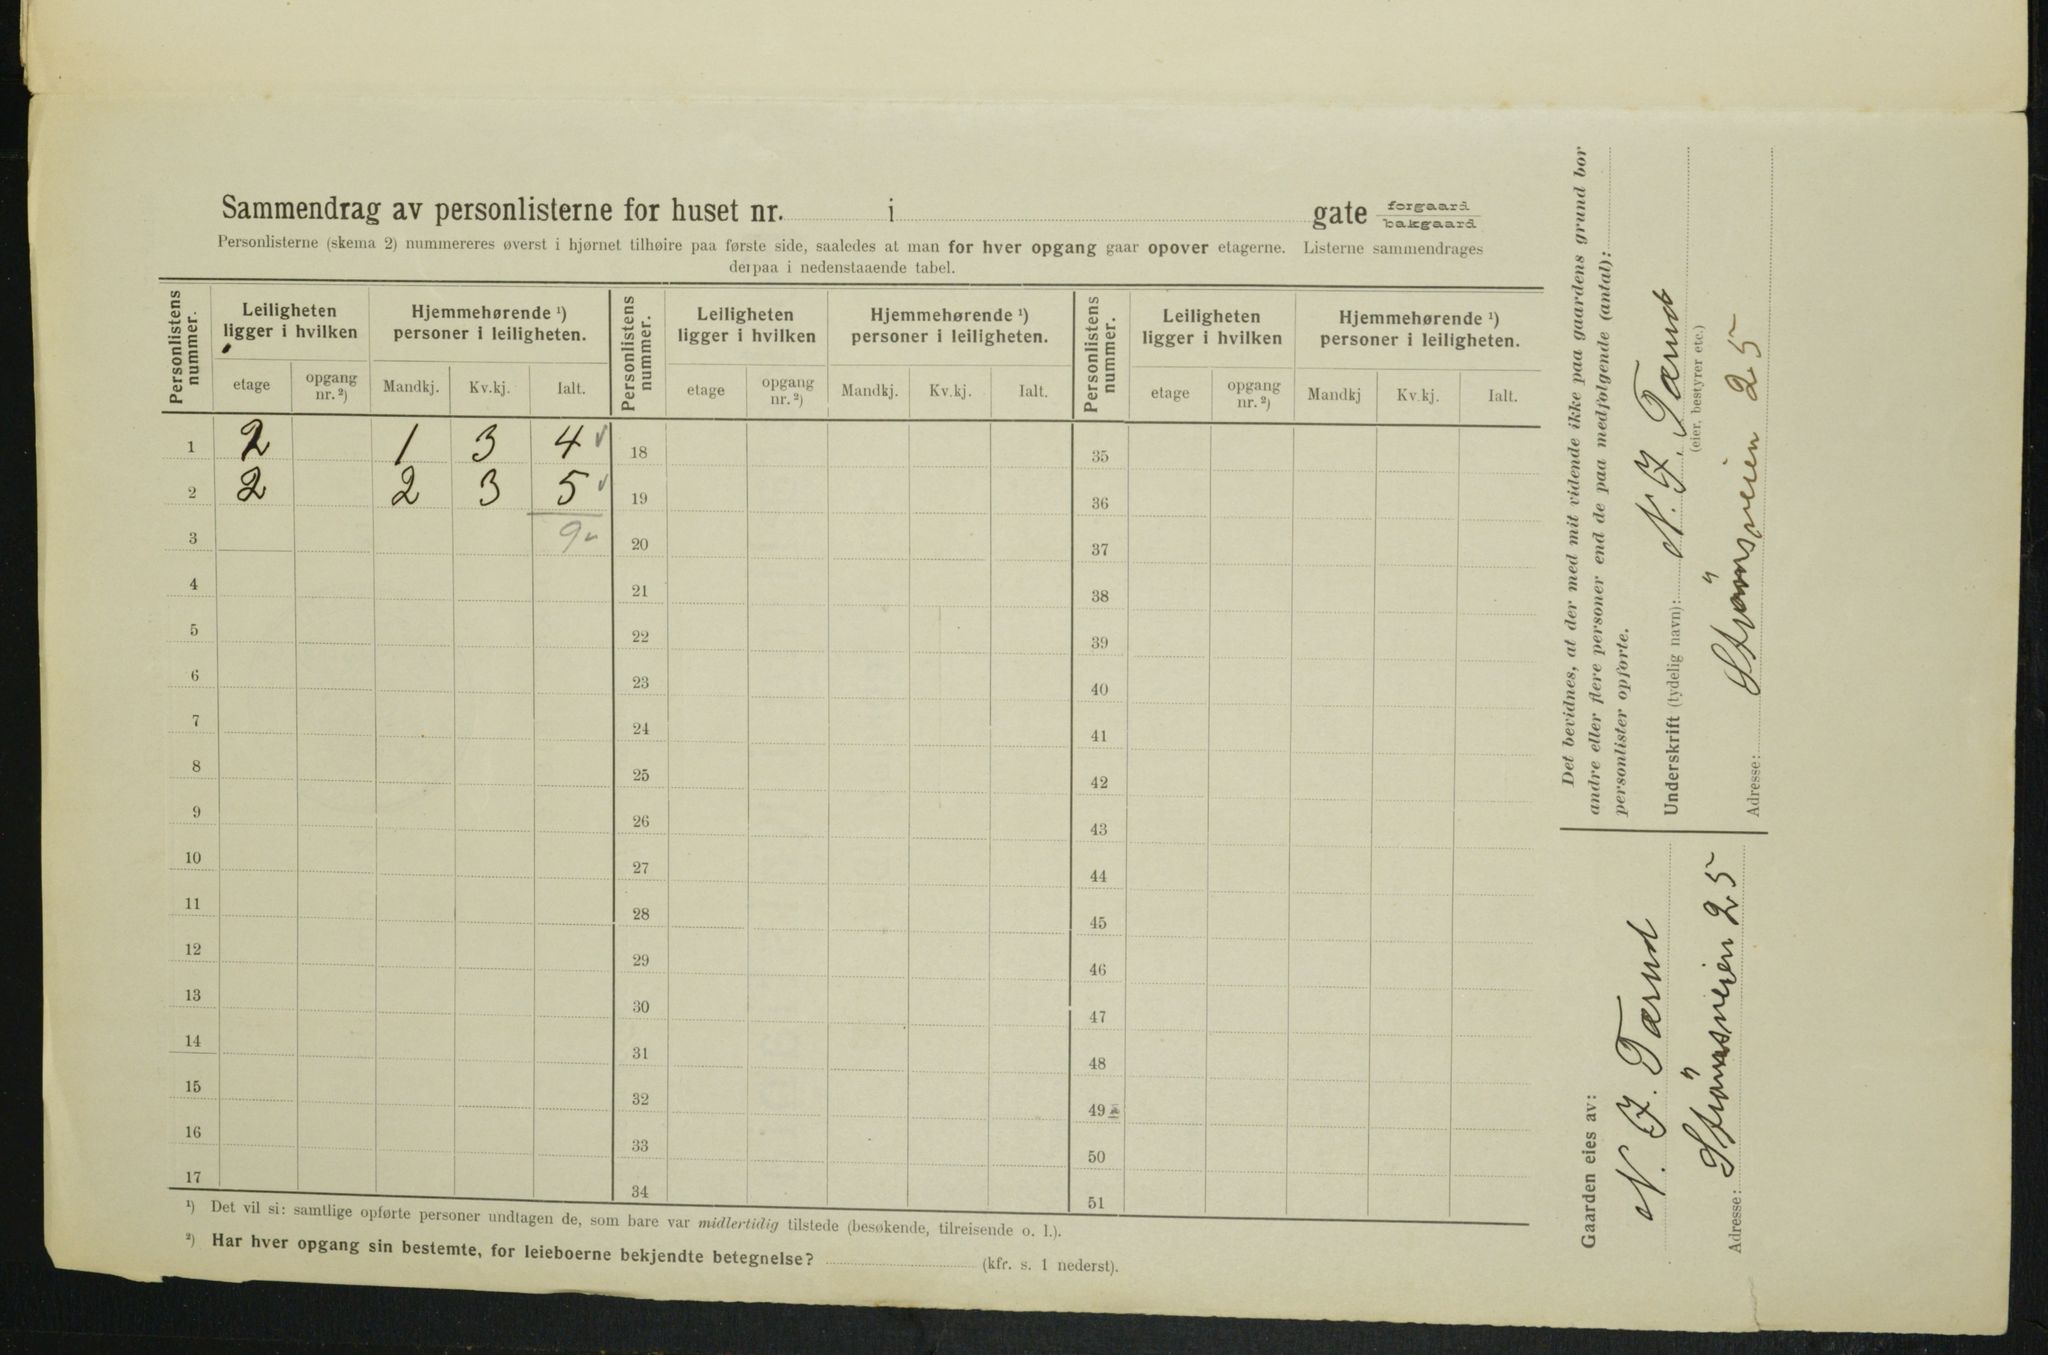 Sammendrag av personlisterne for huset nr. i gate forgaard bakgaard
Personlisterne (skema 2) nummereres øverst i hjørnet tilhøire paa første side, saaledes at man for hver opgang gaar opover etagerne. Listerne sammendrages
derpaa i nedenstaaende tabel.
Personlistens nummer. Leiligheten ligger i hvilken Hjemmehørende ¹) personer i leiligheten. Personlistens nummer. Leiligheten ligger i hvilken Hjemmehørende ¹) personer i leiligheten. Personlistens nummer. Leiligheten ligger i hvilken Hjemmehørende ¹) personer i leiligheten.
etage opgang nr. ²) Mandkj. Kv.kj. Ialt. etage opgang nr. ²) Mandkj. Kv.kj. Ialt. etage opgang nr. ²) Mandkj Kv.kj. Ialt.
1 2 1 3 4 18 35
2 2 2 3 5 19 36
3 9 20 37
4 21 38
5 22 39
6 23 40
7 24 41
8 25 42
9 26 43
10 27 44
11 28 45
12 29 46
13 30 47
14 31 48
15 32 49
16 33 50
17 34 51
¹) Det vil si: samtlige opførte personer undtagen de, som bare var midlertidig tilstede (besøkende, tilreisende o. l.).
²) Har hver opgang sin bestemte, for leieboerne bekjendte betegnelse? (kfr. s. 1 nederst).
Det bevidnes, at der med mit vidende ikke paa gaardens grund bor
andre eller flere personer end de paa medfølgende (antal):
personlister opførte.
Underskrift (tydelig navn): N. J. Tærud
(eier, bestyrer etc.)
Adresse: 25
Gaarden eies av:
N. J. Tærud
Adresse: 25